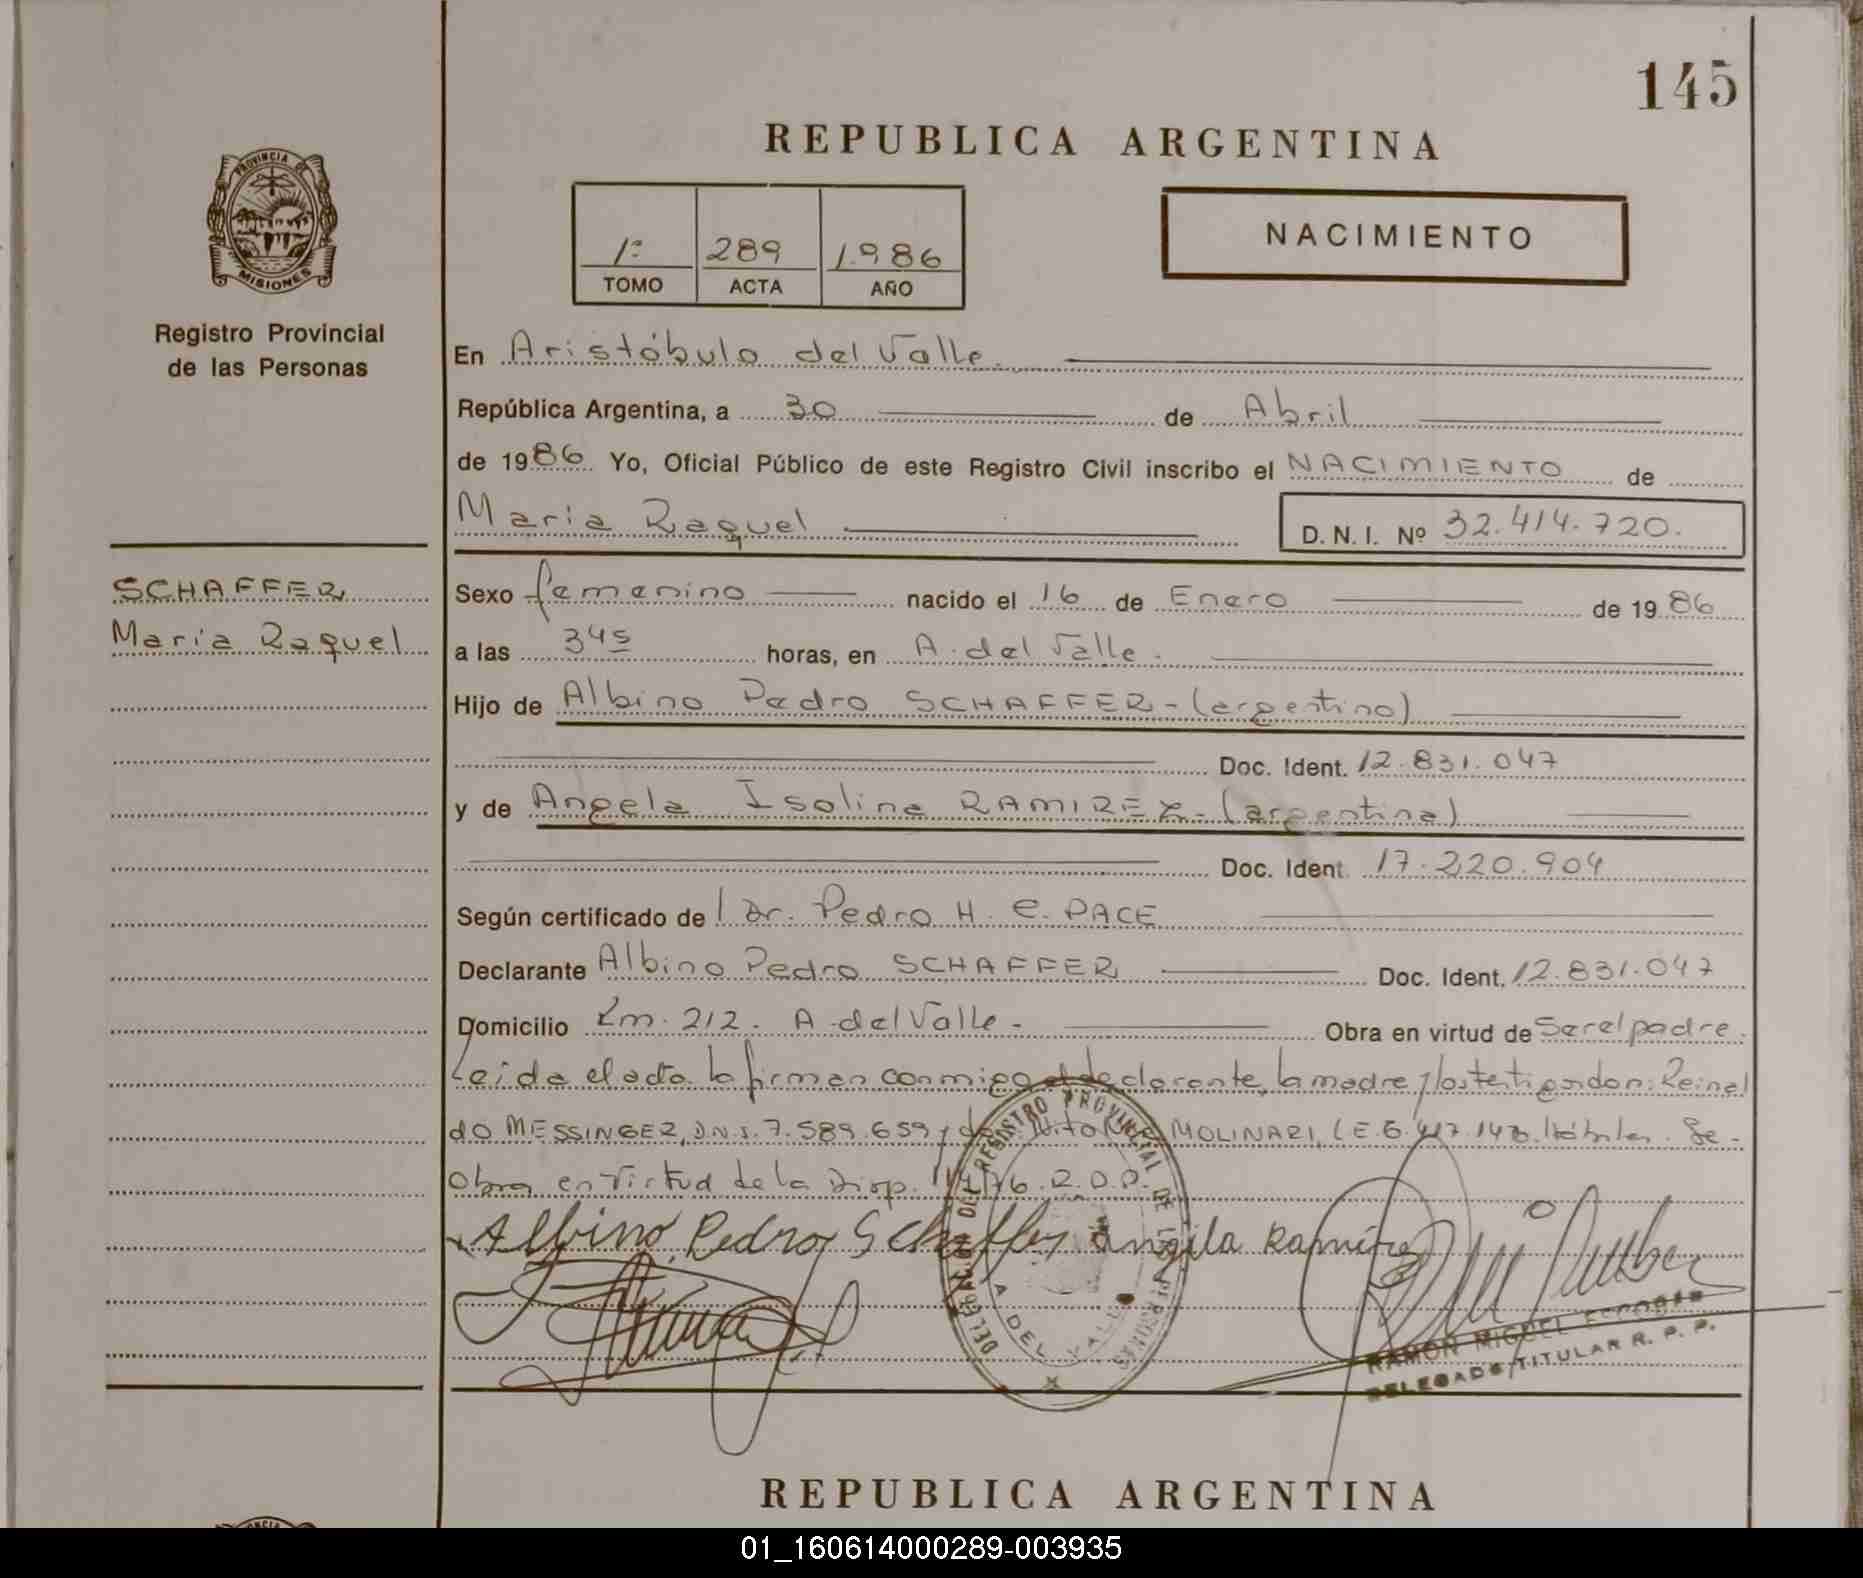 145
REPUBLICA ARGENTINA
PROVINCIA DE
MISIONES
Registro Provincial
de las Personas
1º 289 1.986
TOMO ACTA AÑO
NACIMIENTO
En Aristóbulo del Valle.
República Argentina, a 30 de Abril
de 1986 Yo, Oficial Público de este Registro Civil inscribo el NACIMIENTO de
Maria Raquel D. N. I. Nº 32.414.720.
SCHAFFER
Maria Raquel
Sexo femenino nacido el 16 de Enero de 1986
a las 3 45 horas, en A. del Valle.
Hijo de Albino Pedro SCHAFFER - (argentino)
Doc. Ident. 12.831.047
y de Angela Isolina RAMIREZ - (argentina)
Doc. Ident. 17.220.904
Según certificado de Dr. Pedro H. C. PACE
Declarante Albino Pedro SCHAFFER Doc. Ident. 12.831.047
Domicilio Km. 212. A. del Valle. Obra en virtud de Ser el padre.
Leida el acta la firman conmigo el declarante, la madre y los testigos don: Reinal
do MESSINGER, D.N.I. 7.589.659 y MOLINARI, L E Hábiles. Se
Obra en virtud de la Disp.
Albino Pedro Schaffer Angela Ramirez
DELEGACION DEL REGISTRO PROVINCIAL DE LAS PERSONAS
A. DEL VALLE
RAMON MIGUEL
DELEGADO TITULAR R. P. P.
REPUBLICA ARGENTINA
01_160614000289-003935